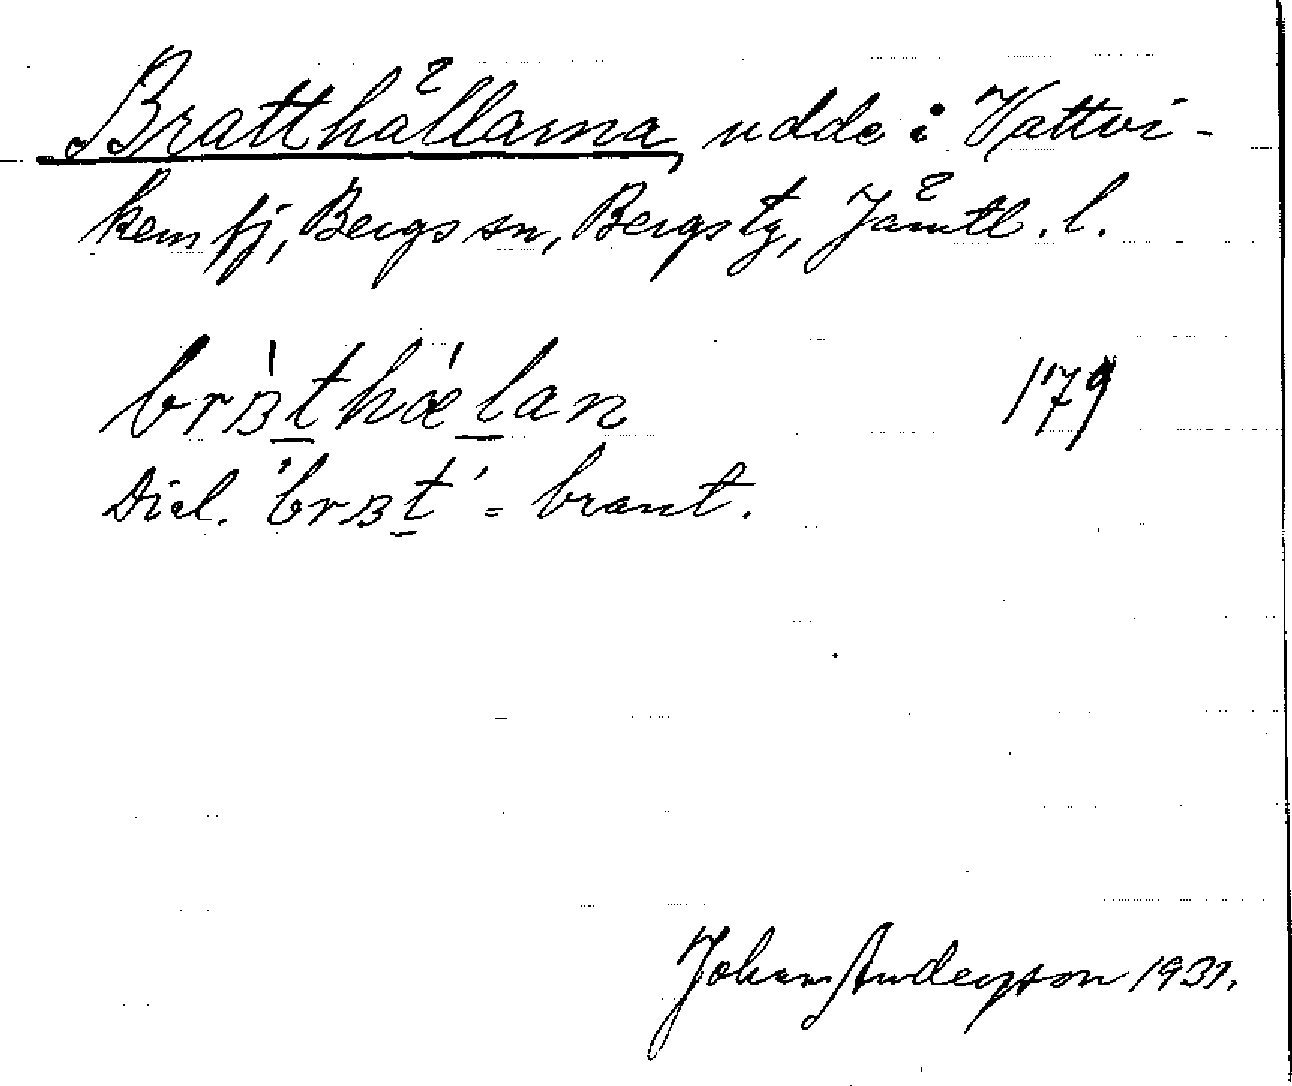 Bratthällarna, udde i Vattvi-
ken fj, Bergs sn, Bergs tg, Jämtl. l.
brʙ̀t̲hǽl̲an 179
Dial. 'brʙt̲' = brant.
Johan Anderson 1931.